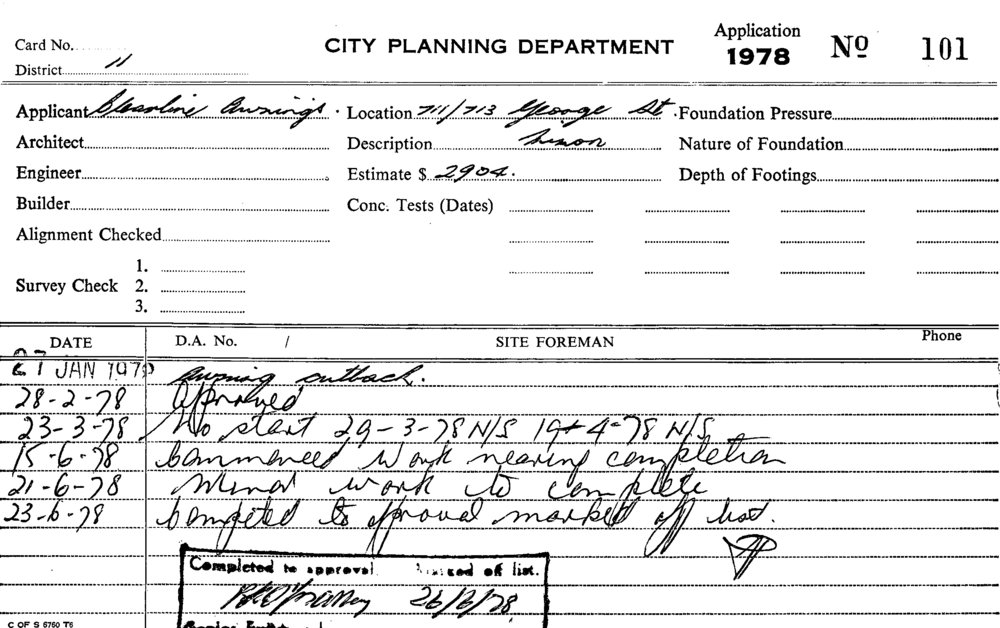 Application
Card No. CITY PLANNING DEPARTMENT 1978 No 101
District 11
Applicant Clearline Awnings. Location 711/713 George St. Foundation Pressure
Architect Description Minor Nature of Foundation
Engineer Estimate $ 2904. Depth of Footings
Builder Conc. Tests (Dates)
Alignment Checked
1.
Survey Check 2.
3.
DATE D.A. No. / SITE FOREMAN Phone
JAN 1978 Awning cutback.
28-2-78 Approved
23-3-78 No start 29-3-78 N/S 19-4-78 N/S
15-6-78 Commenced Work nearing completion
21-6-78 Minor work to complete
23-6-78 Competed to approval marked off list.
Completed to approval. of list.
26/6/78
C OF S 6760 T6